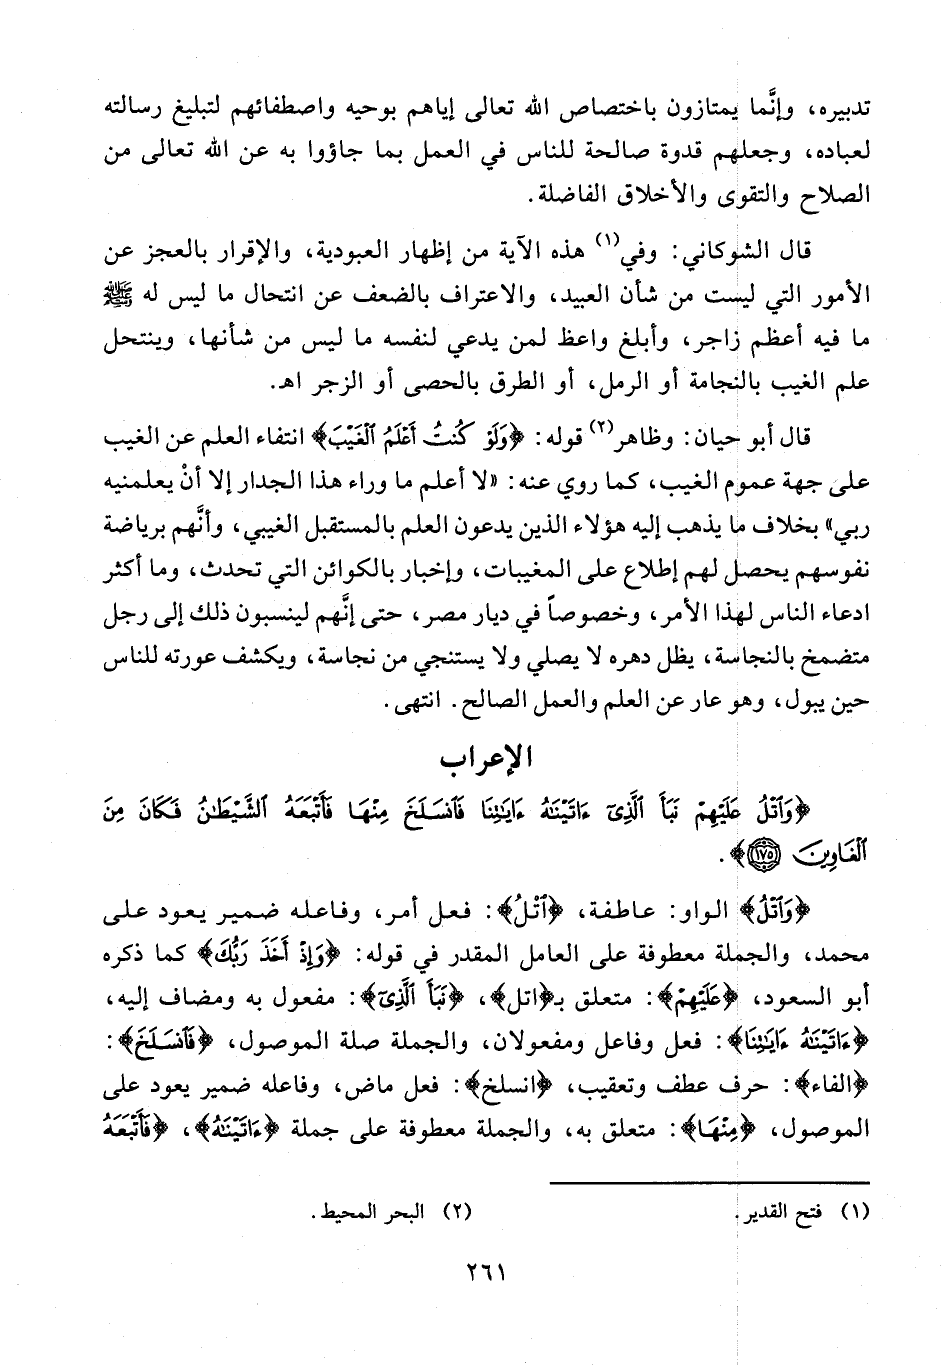 تدبيره، وإنَّما يمتازون باختصاص الله تعالى إياهم بوحيه واصطفائهم لتبليغ رسالته
لعباده، وجعلهم قدوة صالحة للناس في العمل بما جاؤوا به عن الله تعالى من
الصلاح والتقوى والأخلاق الفاضلة.
قال الشوكاني: وفي(١) هذه الآية من إظهار العبودية، والإقرار بالعجز عن
الأمور التي ليست من شأن العبيد، والاعتراف بالضعف عن انتحال ما ليس له ﷺ
ما فيه أعظم زاجر، وأبلغ واعظ لمن يدعي لنفسه ما ليس من شأنها، وينتحل
علم الغيب بالنجامة أو الرمل، أو الطرق بالحصى أو الزجر اهـ.
قال أبو حيان: وظاهر(٢) قوله: ﴿وَلَوْ كُنتُ أَعْلَمُ ٱلْغَيْبَ﴾ انتفاء العلم عن الغيب
على جهة عموم الغيب، كما روي عنه: «لا أعلم ما وراء هذا الجدار إلا أنْ يعلمنيه
ربي» بخلاف ما يذهب إليه هؤلاء الذين يدعون العلم بالمستقبل الغيبي، وأنَّهم برياضة
نفوسهم يحصل لهم إطلاع على المغيبات، وإخبار بالكوائن التي تحدث، وما أكثر
ادعاء الناس لهذا الأمر، وخصوصاً في ديار مصر، حتى إنَّهم لينسبون ذلك إلى رجل
متضمخ بالنجاسة، يظل دهره لا يصلي ولا يستنجي من نجاسة، ويكشف عورته للناس
حين يبول، وهو عار عن العلم والعمل الصالح. انتهى.
الإعراب
﴿وَٱتْلُ عَلَيْهِمْ نَبَأَ ٱلَّذِىٓ ءَاتَيْنَٰهُ ءَايَٰتِنَا فَٱنسَلَخَ مِنْهَا فَأَتْبَعَهُ ٱلشَّيْطَٰنُ فَكَانَ مِنَ
ٱلْغَاوِينَ ١٧٥﴾.
﴿وَٱتْلُ﴾ الواو: عاطفة، ﴿ٱتْلُ﴾: فعل أمر، وفاعله ضمير يعود على
محمد، والجملة معطوفة على العامل المقدر في قوله: ﴿وَإِذْ أَخَذَ رَبُّكَ﴾ كما ذكره
أبو السعود، ﴿عَلَيْهِمْ﴾: متعلق بـ﴿اتل﴾، ﴿نَبَأَ ٱلَّذِىٓ﴾: مفعول به ومضاف إليه،
﴿ءَاتَيْنَٰهُ ءَايَٰتِنَا﴾: فعل وفاعل ومفعولان، والجملة صلة الموصول، ﴿فَٱنسَلَخَ﴾:
﴿الفاء﴾: حرف عطف وتعقيب، ﴿انسلخ﴾: فعل ماض، وفاعله ضمير يعود على
الموصول، ﴿مِنْهَا﴾: متعلق به، والجملة معطوفة على جملة ﴿ءَاتَيْنَٰهُ﴾، ﴿فَأَتْبَعَهُ
(١) فتح القدير. (٢) البحر المحيط.
٢٦١